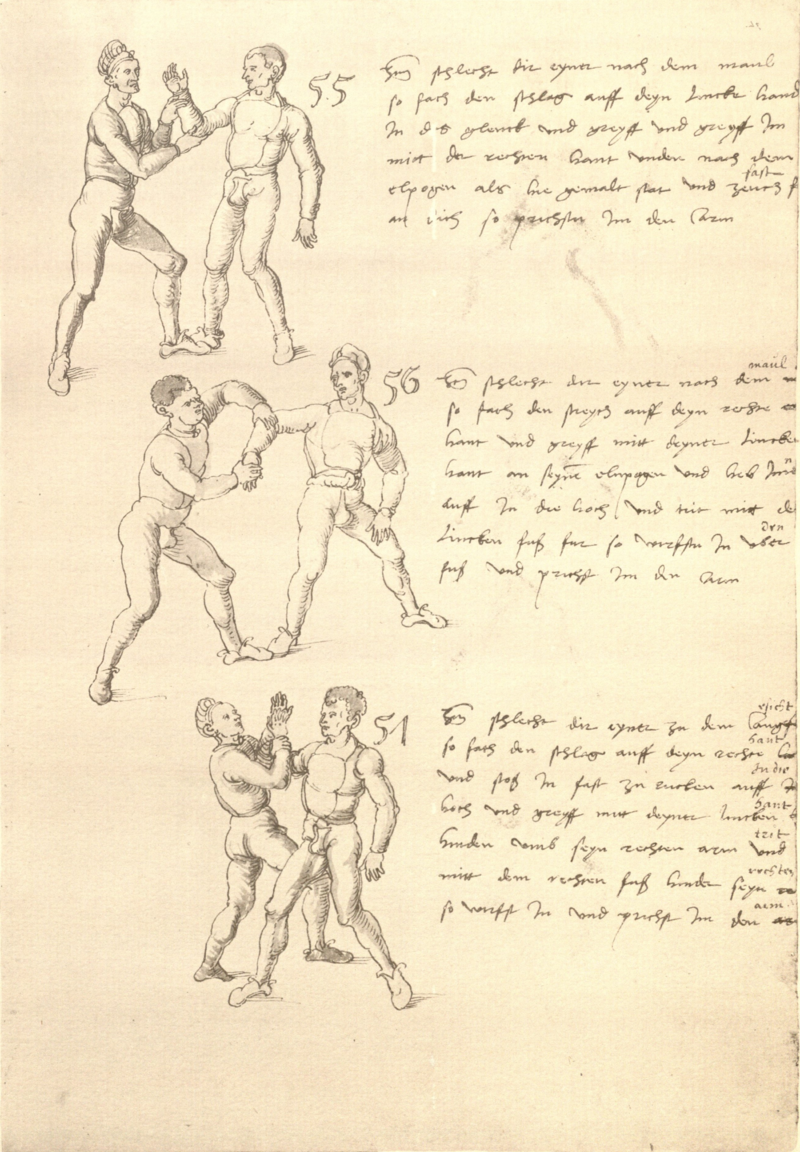 55
Item schlecht dir eyner nach dem maul
so fach den schlag auff deyn lincke hand
In das glenck und greyff und greyff Im
mitt der rechten hant unden nach dem
elpogen als hie gemalt stat und zeuch fast
an dich so prichstu Im den Carm
56
Item schlecht dir eyner nach dem maul
so fach den streych auff deyn rechte
hant und greyff mitt deyner lincken
hant an seynen elnpogen und heb Im
auff In die hoch und trit mitt de
lincken fuß fur so wirfstu In uber den
fuß und prichst Im den Carm
51
Item schlecht dir eyner zu dem angsicht
so fach den schlag auff deyn rechte hant
und stoß In fast zu rucken auff In die
hoch und greyff mitt deyner lincken hant
hinden umb seyn rechten arm und trit
mitt dem rechten fuß hinder seyn rechten
so wirfst In und prichst Im den arm